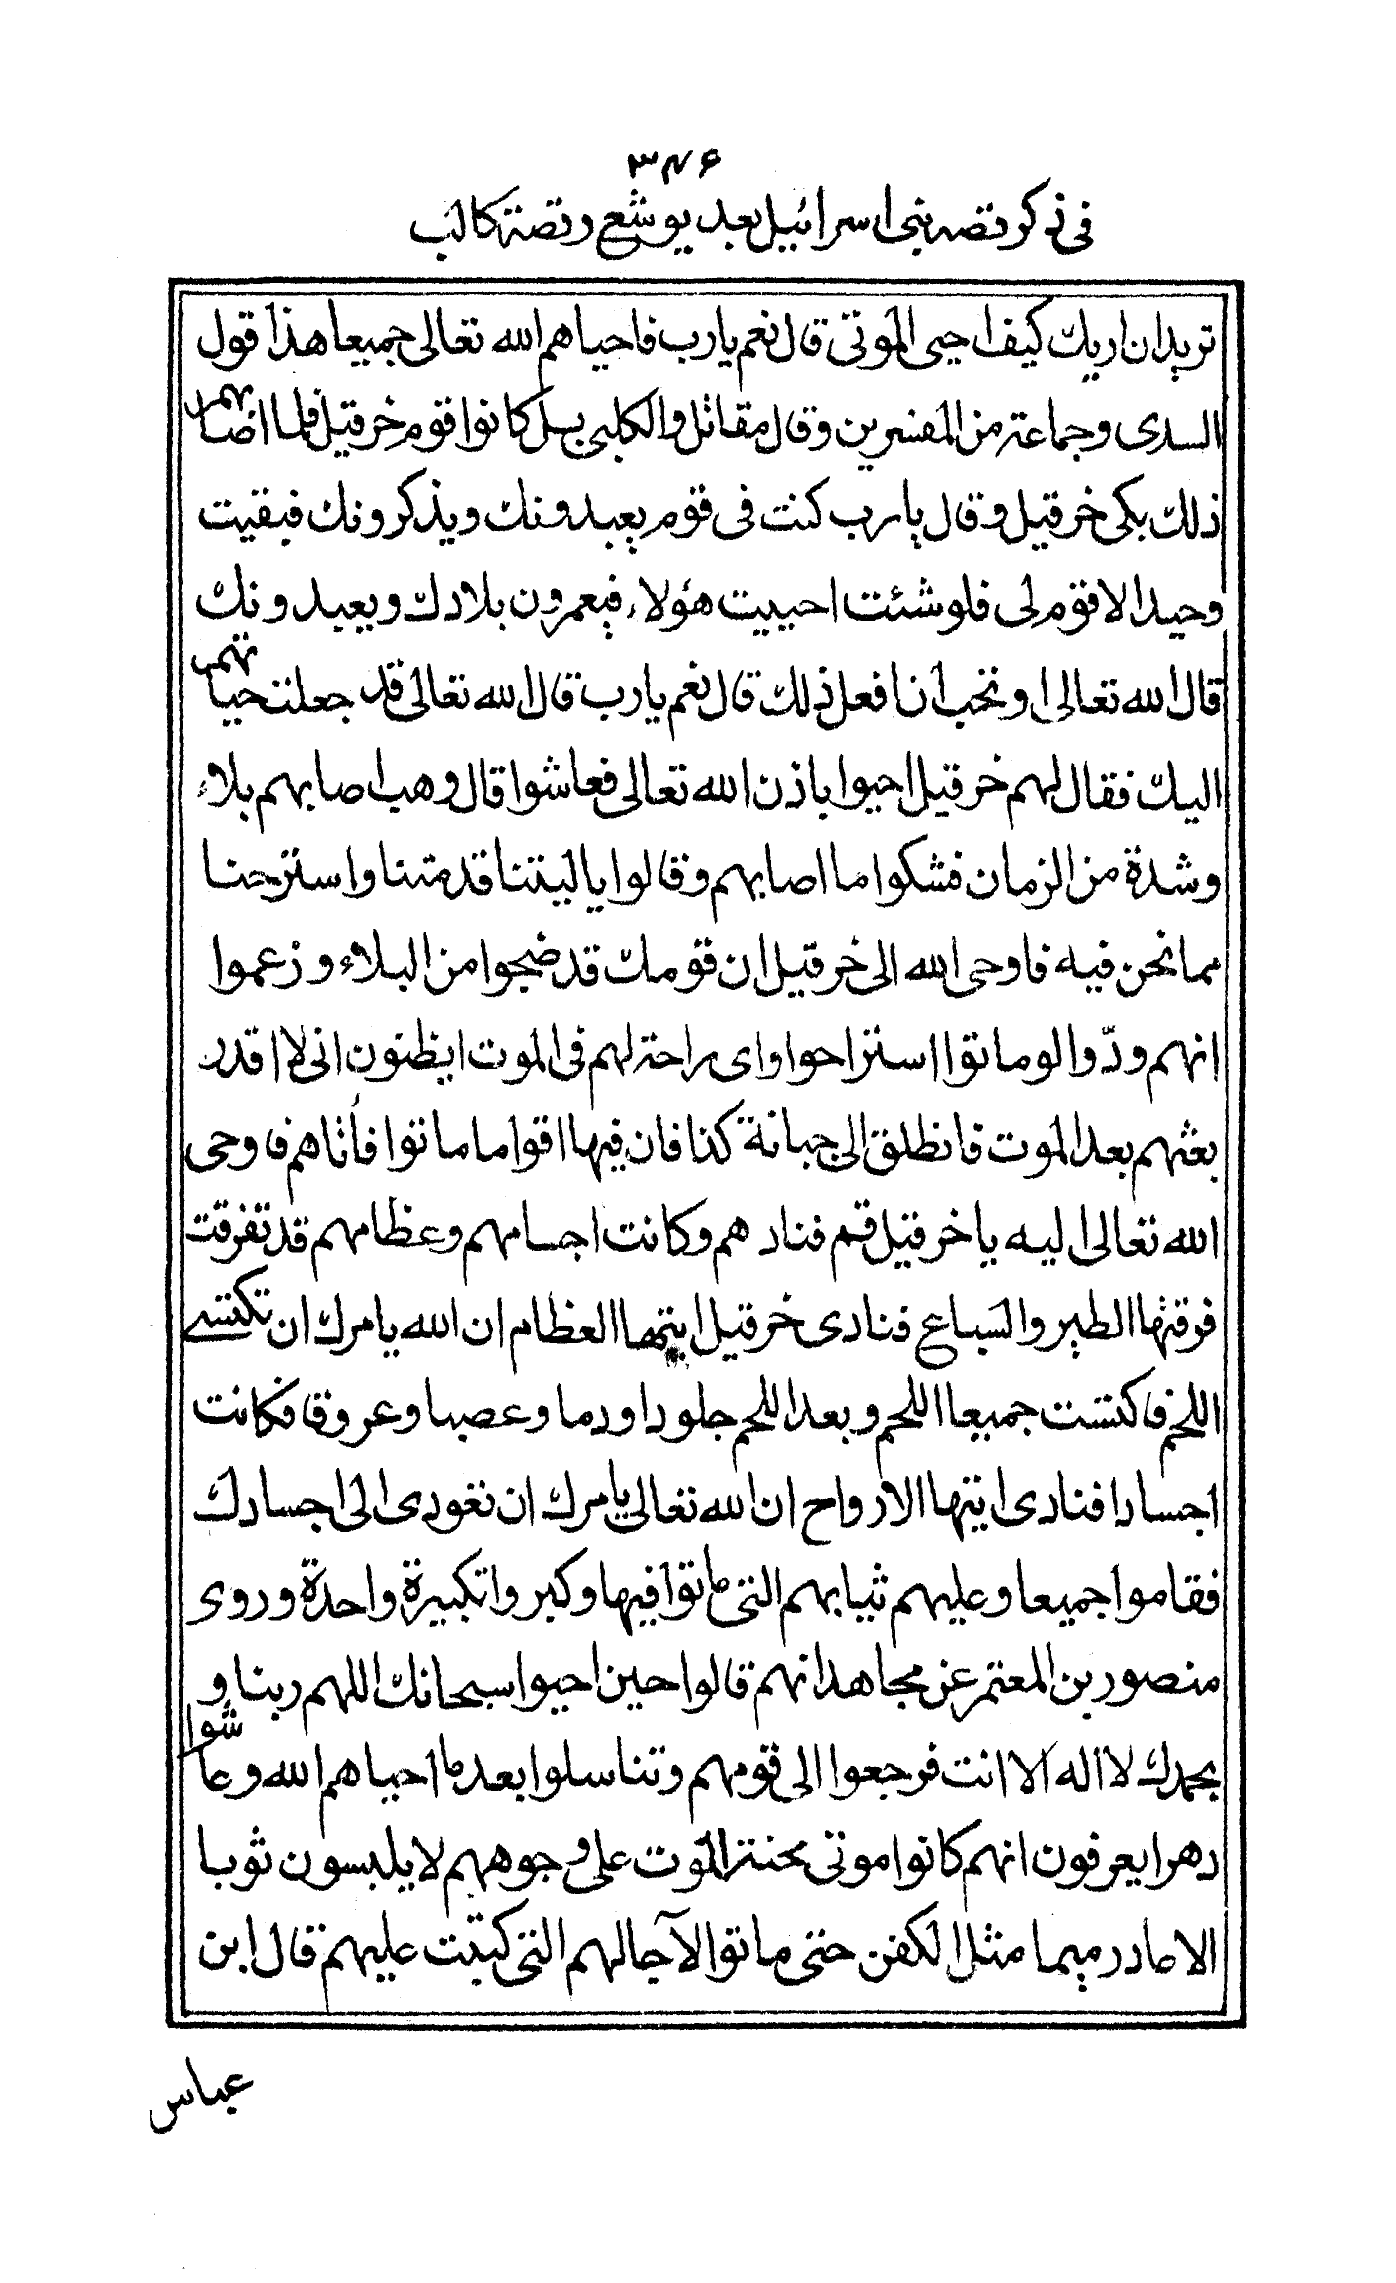 ٣٤٦
في ذكر قصة بني اسرائيل بعد يوشع وقصة كالب
تريد ان اريك كيف احيي الموتى قال نعم يا رب فاحياهم الله تعالى جميعا هذا قول
السدى وجماعة من المفسرين وقال مقاتل والكلبى بل كانوا قوم خرقيل فلما اصابهم
ذلك بكى خرقيل وقال يا رب كنت فى قوم يعبدونك ويذكرونك فبقيت
وحيدا لا قوم لى فلو شئت احييت هؤلاء فيعمرون بلادك ويعبدونك
قال الله تعالى او تحب ان افعل ذلك قال نعم يا رب قال الله تعالى قد جعلت حياتهم
اليك فقال لهم خرقيل احيوا باذن الله تعالى فعاشوا قال وهب اصابهم بلاء
وشدة من الزمان فشكوا ما اصابهم وقالوا يا ليتنا قد متنا واسترحنا
مما نحن فيه فاوحى الله الى خرقيل ان قومك قد ضجوا من البلاء وزعموا
انهم ودّوا لو ماتوا استراحوا واى راحة لهم فى الموت ايظنون انى لا اقدر
بعثهم بعد الموت فانطلق الى جبانة كذا فان فيها اقواما ماتوا فأتاهم فاوحى
الله تعالى اليه يا خرقيل قم فنادهم وكانت اجسامهم وعظامهم قد تفرقت
فرقتها الطير والسباع فنادى خرقيل ايتها العظام ان الله يامرك ان تكتسے
اللحم فاكتست جميعا اللحم وبعد اللحم جلودا ودما وعصبا وعروقا فكانت
اجسادا فنادى ايتها الارواح ان الله تعالى يامرك ان تعودى الى اجسادك
فقاموا جميعا وعليهم ثيابهم التى ماتوا فيها وكبروا تكبيرة واحدة وروى
منصور بن المعتمر عن مجاهد انهم قالوا حين احيوا سبحانك اللهم ربنا و
بحمدك لا اله الا انت فرجعوا الى قومهم وتناسلوا بعد ما احياهم الله وعاشوا
دهرا يعرفون انهم كانوا موتى سحنة الموت على وجوههم لا يلبسون ثوبا
الا عاد رميما مثل الكفن حتى ماتوا لآجالهم التى كتبت عليهم قال ابن
عباس